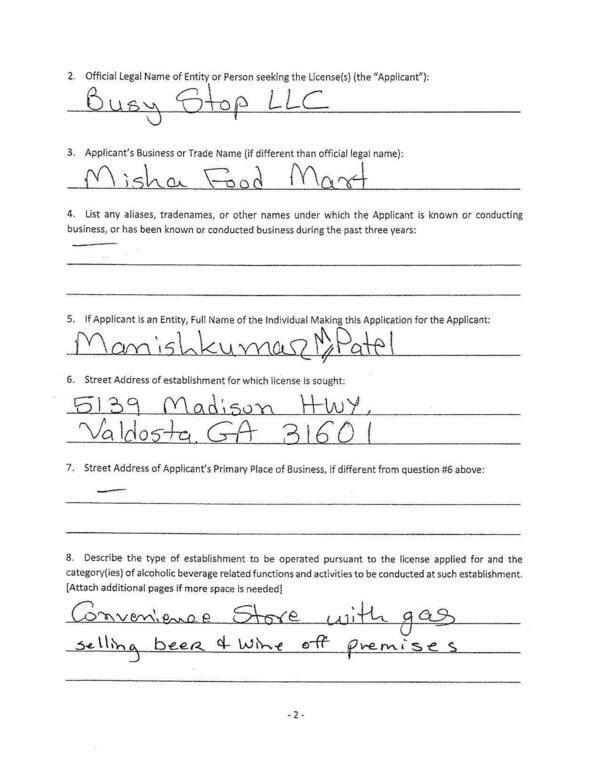 2. Official Legal Name of Entity or Person seeking the License(s) (the "Applicant"):
Busy Stop LLC
3. Applicant's Business or Trade Name (if different than official legal name):
Misha Food Mart
4. List any aliases, tradenames, or other names under which the Applicant is known or conducting
business, or has been known or conducted business during the past three years:
5. If Applicant is an Entity, Full Name of the Individual Making this Application for the Applicant:
Manishkumar Patel
6. Street Address of establishment for which license is sought:
5139 Madison HWY,
Valdosta, GA 31601
7. Street Address of Applicant's Primary Place of Business, if different from question #6 above:
8. Describe the type of establishment to be operated pursuant to the license applied for and the
category(ies) of alcoholic beverage related functions and activities to be conducted at such establishment.
[Attach additional pages if more space is needed]
Convenience Store with gas
selling beer & wine off premises
- 2 -